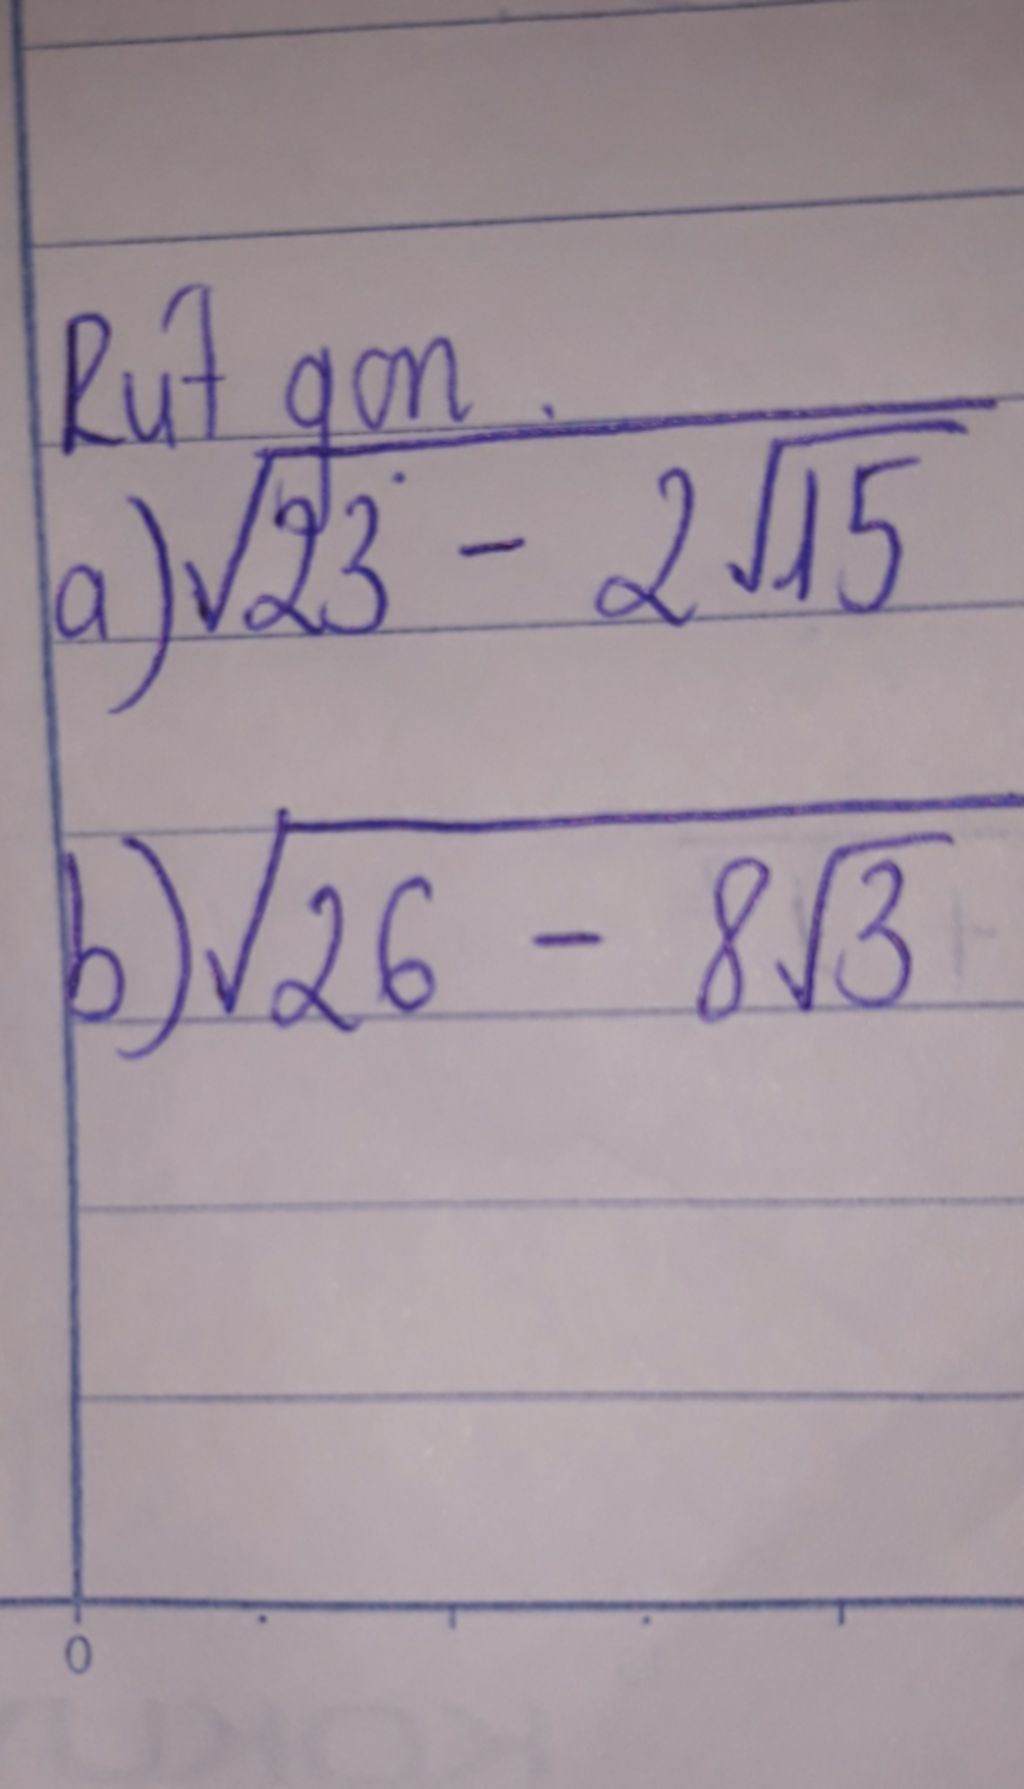 Rút gọn.
a) √23 - 2√15
b) √26 - 8√3
0